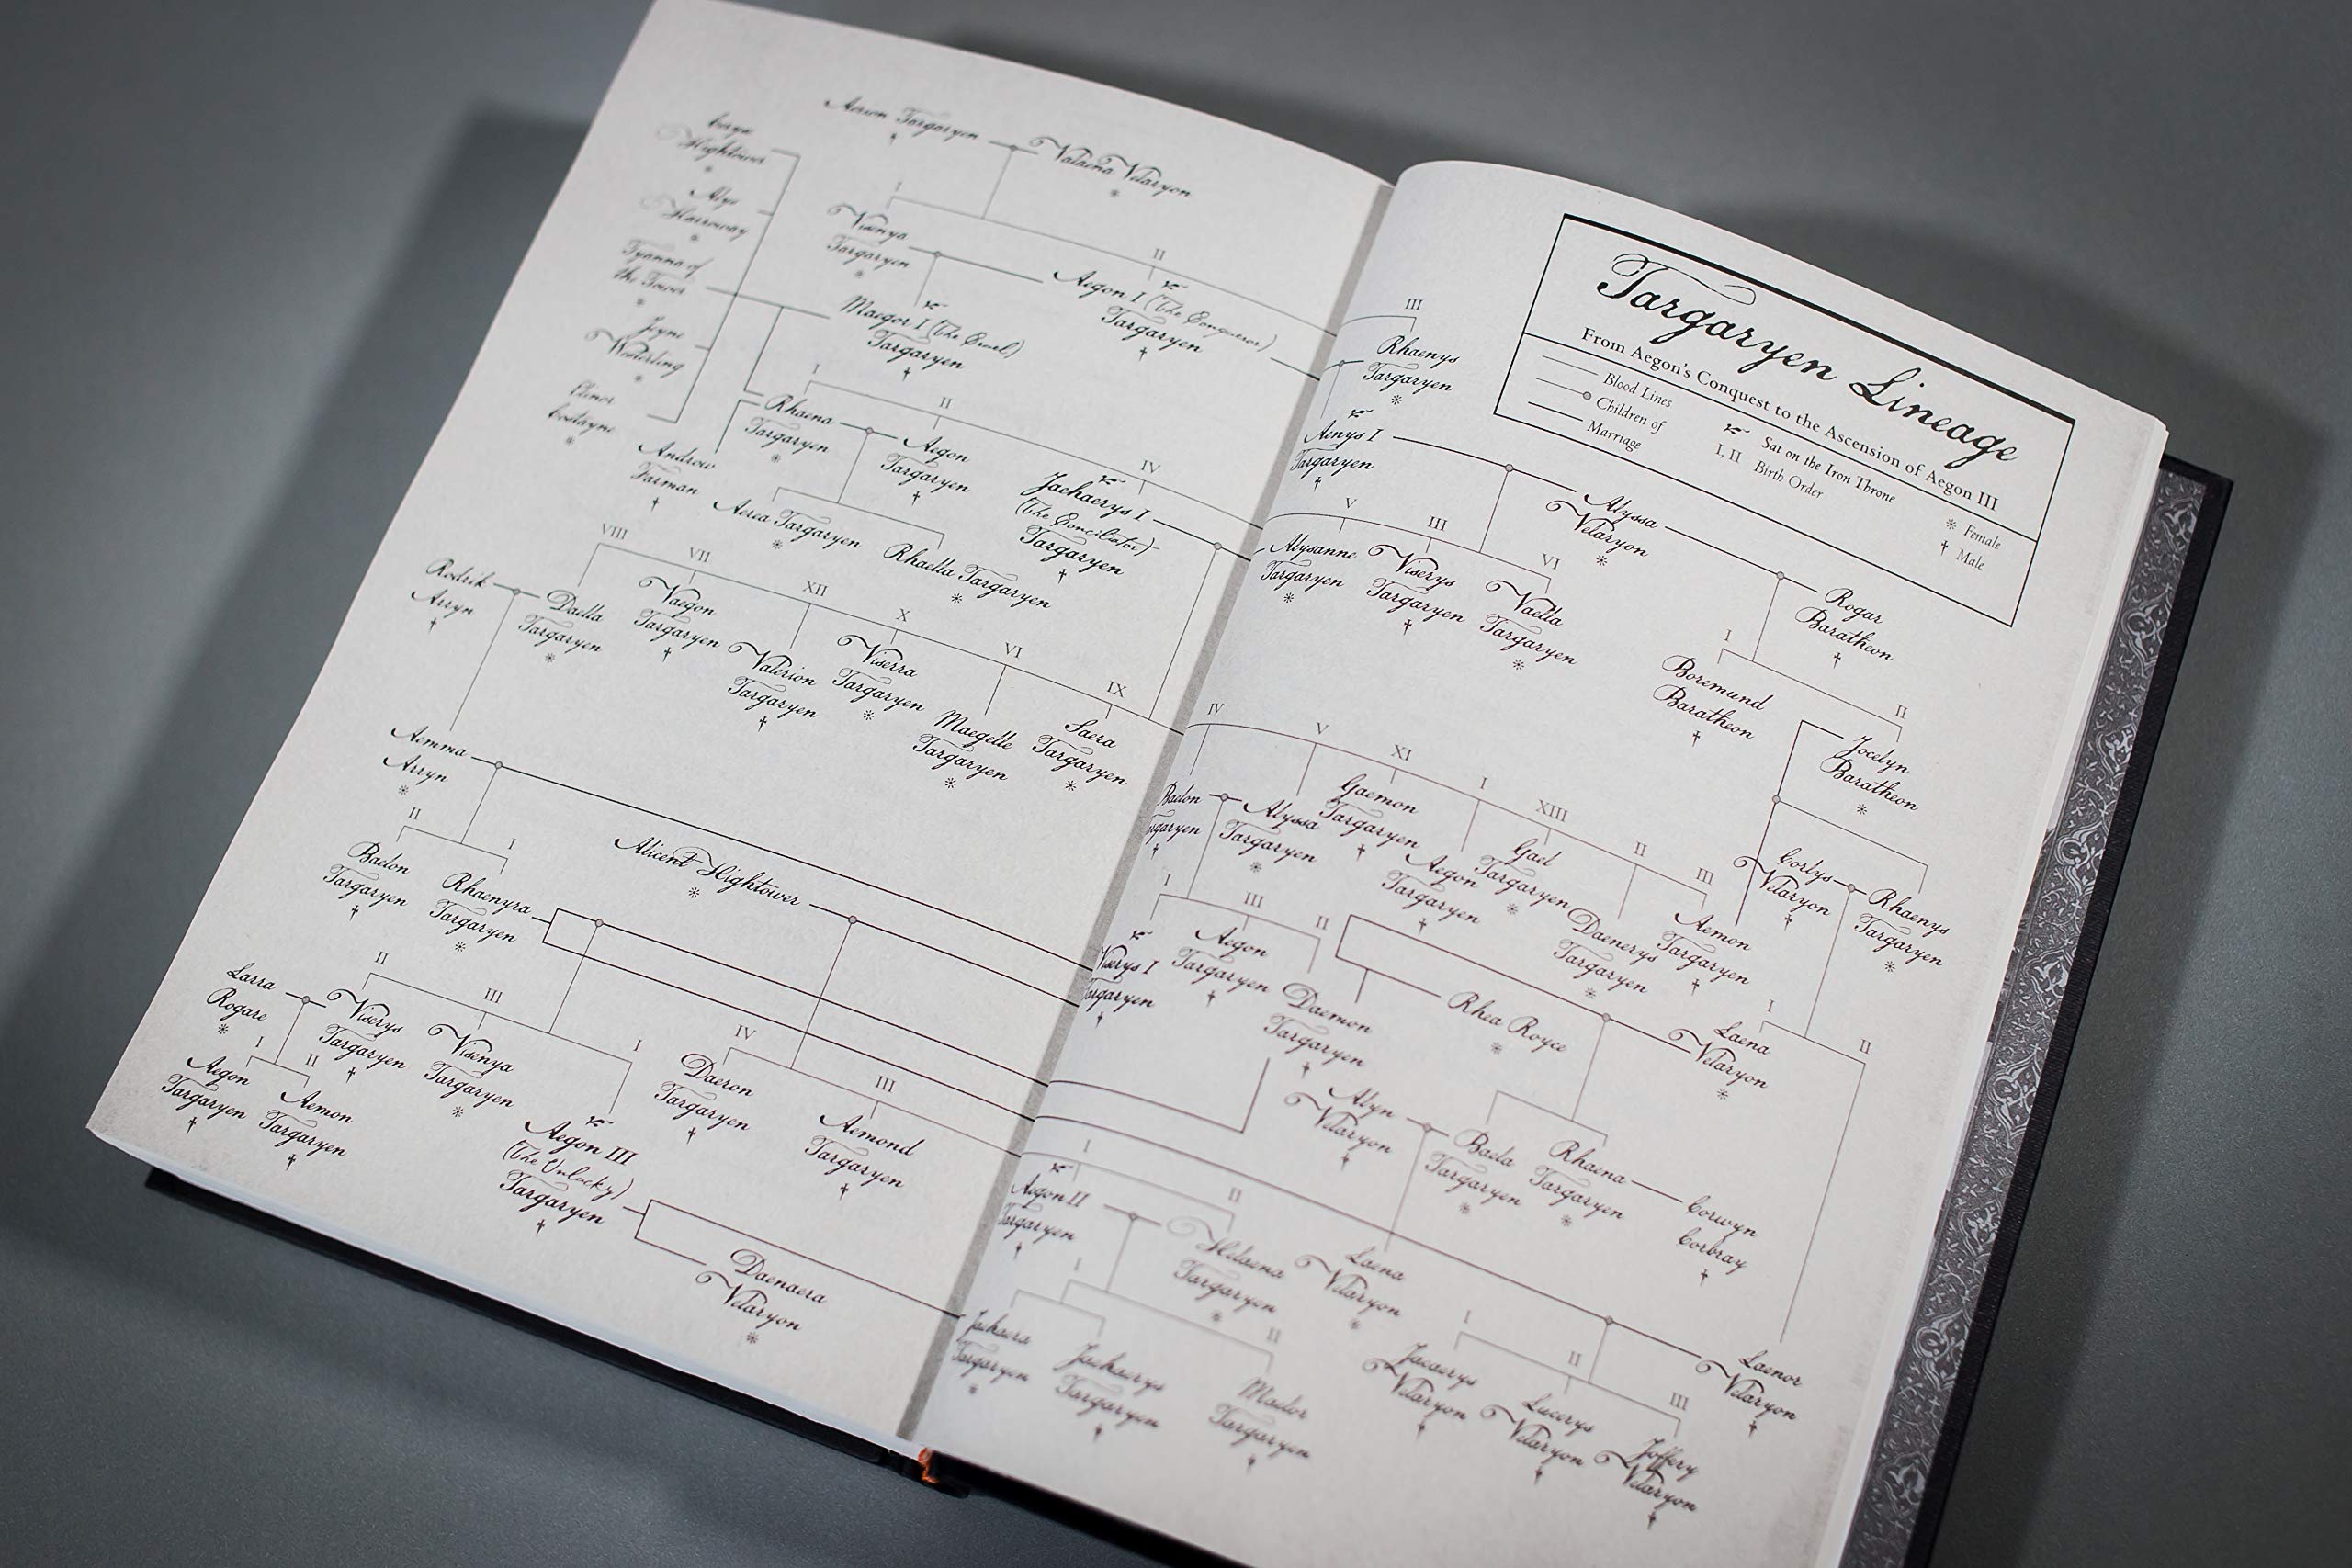 Aerion Targaryen
Valaena Velaryon
Ceryse
Hightower
Alys
Harroway
Tyanna of
the Tower
Jeyne
Westerling
Elinor
Costayne
I
II
Visenya
Targaryen
Aegon I (The Conqueror)
Targaryen
Maegor I (The Cruel)
Targaryen
I
II
IV
Rhaena
Targaryen
Aegon
Targaryen
Jaehaerys I
(The Conciliator)
Targaryen
Andrew
Farman
Aerea Targaryen
Rhaella Targaryen
VIII
VII
XII
X
VI
IX
Rodrik
Arryn
Daella
Targaryen
Vaegon
Targaryen
Valerion
Targaryen
Viserra
Targaryen
Maegelle
Targaryen
Saera
Targaryen
Aemma
Arryn
II
I
Baelon
Targaryen
Rhaenyra
Targaryen
Alicent Hightower
II
III
I
IV
III
Larra
Rogare
Viserys
Targaryen
Visenya
Targaryen
I
II
Aegon
Targaryen
Aemon
Targaryen
Aegon III
(The Unlucky)
Targaryen
Daeron
Targaryen
Aemond
Targaryen
Daenaera
Velaryon
Targaryen Lineage
From Aegon's Conquest to the Ascension of Aegon III
Blood Lines
Children of
Marriage
Sat on the Iron Throne
I, II Birth Order
Female
Male
III
Rhaenys
Targaryen
Aenys I
Targaryen
Alyssa
Velaryon
V
III
VI
Alysanne
Targaryen
Viserys
Targaryen
Vaella
Targaryen
Rogar
Baratheon
I
II
Boremund
Baratheon
Jocelyn
Baratheon
IV
V
XI
I
XIII
II
III
Baelon
Targaryen
Alyssa
Targaryen
Gaemon
Targaryen
Aegon
Targaryen
Gael
Targaryen
Daenerys
Targaryen
Aemon
Targaryen
Corlys
Velaryon
Rhaenys
Targaryen
I
III
II
Viserys I
Targaryen
Aegon
Targaryen
Daemon
Targaryen
Rhea Royce
I
II
Laena
Velaryon
Alyn
Velaryon
Baela
Targaryen
Rhaena
Targaryen
Corwyn
Corbray
I
II
Aegon II
Targaryen
Helaena
Targaryen
Laena
Velaryon
Laenor
Velaryon
I
II
Jaehaera
Targaryen
Jaehaerys
Targaryen
Maelor
Targaryen
I
II
III
Jacaerys
Velaryon
Lucerys
Velaryon
Joffery
Velaryon